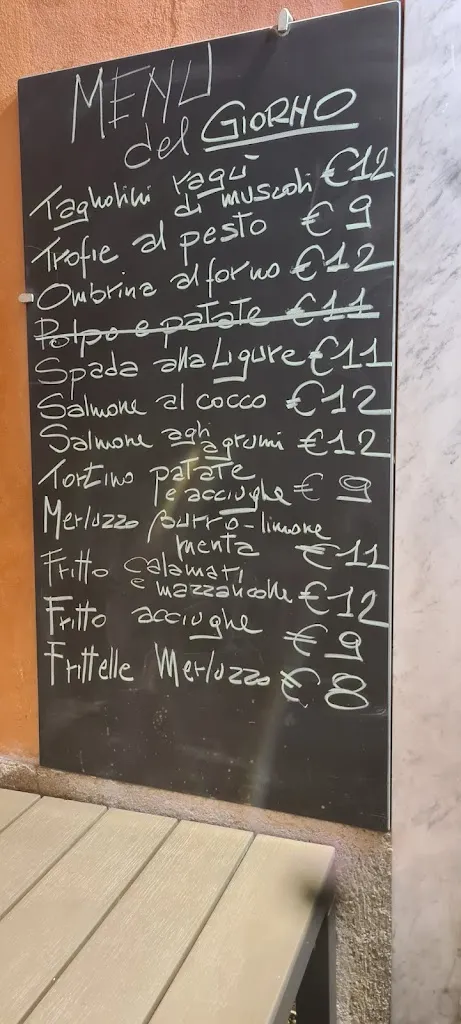 MENU
del GIORNO
Tagliolini ragù
di muscoli €12
Trofie al pesto €9
Ombrina al forno €12
Polpo e patate €11
Spada alla Ligure €11
Salmone al cocco €12
Salmone agli
agrumi €12
Tortino patate
e acciughe € 9
Merluzzo burro-limone
menta €11
Fritto calamari
e mazzancolle €12
Fritto acciughe €9
Frittelle Merluzzo € 8